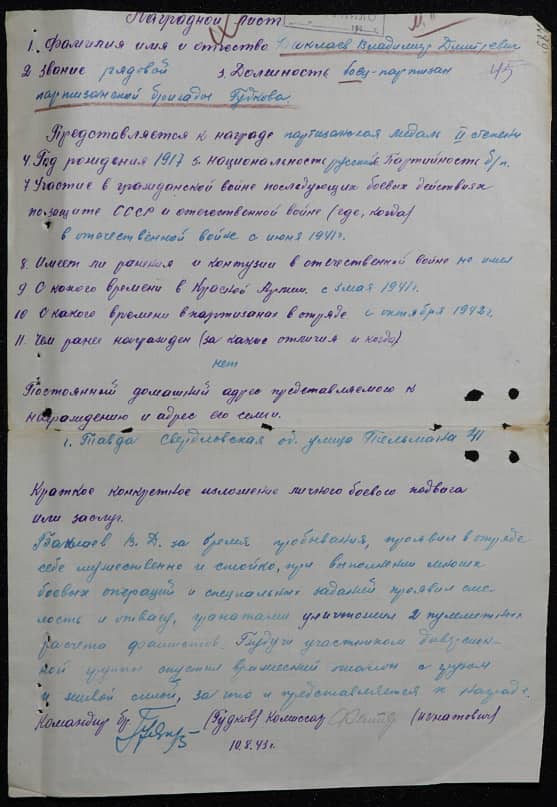 Наградной лист
1. Фамилия имя и отчество Владимир Дмитревич
2 Звание рядовой 3. Должность боец-партизан 45
партизанской бригады Гудкова.
Представляется к награде партизанская медаль II степени
4. Год рождения 1917 5. национальность русский Партийность б/п.
7 Участие в гражданской войне последующих боевых действиях
по защите СССР и отечественной войне (где, когда)
в отечественной войне с июня 1941 г.
8. Имеет ли ранения и контузии в отечественной войне не имел
9 С какого времени в Красной Армии. с 3 мая 1941 г.
10 С какого времени в партизанах в отряде с октября 1942 г.
11. Чем ранее награжден (за какие отличия и когда)
нет
Постоянный домашний адрес представляемого к
награждению и адрес его семьи.
г. Тавда Свердловская об. улица Тельмана 41
Краткое конкретное изложение личного боевого подвига
или заслуг.
В. Д. за время пробывания, проявил в отряде
себе мужественно и стойко, при выполнении многих
боевых операций и специальных заданий проявил сме-
лость и отвагу, гранатами уничтожил 2 пулеметных
расчета фашистов. Будучи участником диверсион-
ной группы спустил вражеский эшелон с грузом
и живой силой, за что и представляется к награде.
Командир бр. (Гудков) Комиссар (Игнатович)
10.8.43 г.